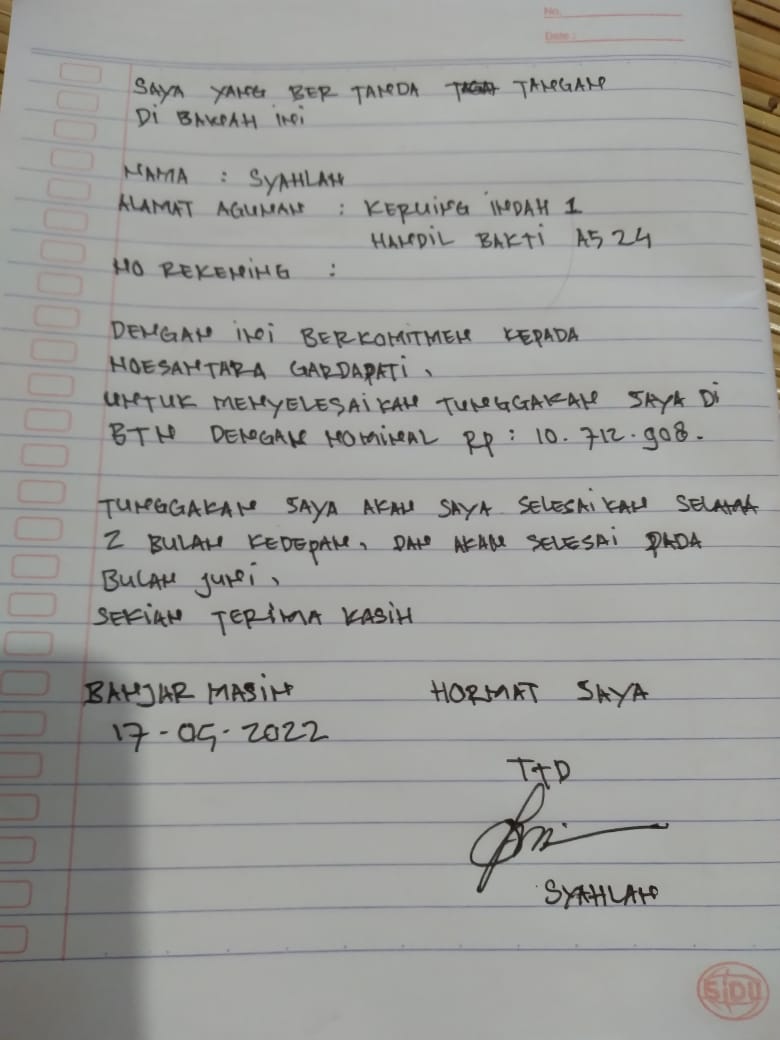 No.
Date :
SAYA YANG BER TANDA TANGAN
DI BAWAH INI
NAMA : SYAHLAN
ALAMAT AGUNAN : KERUING INDAH 1
HANDIL BAKTI A5 24
NO REKENING :
DENGAN INI BERKOMITMEN KEPADA
NOESANTARA GARDAPATI,
UNTUK MENYELESAIKAN TUNGGAKAN SAYA DI
BTN DENGAN NOMINAL RP : 10.712.908.
TUNGGAKAN SAYA AKAN SAYA SELESAIKAN SELAMA
2 BULAN KEDEPAN, DAN AKAN SELESAI PADA
BULAN JUNI,
SEKIAN TERIMA KASIH
BANJAR MASIN HORMAT SAYA
17-05-2022
TTD
SYAHLAN
SIDU